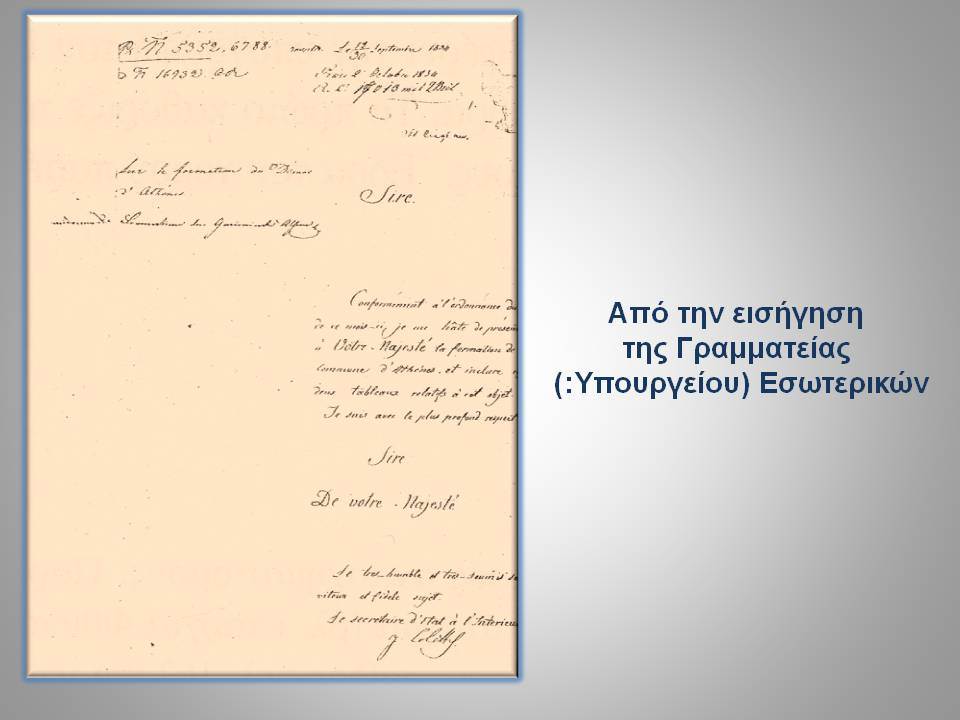 5352, 6788. Le 18/30 Septembre 1834
16932.
Octobre 1834
Sur la formation du Dimos
d'Athènes
Sire.
Conformément à l'ordonnance du
de ce mois-ci, je me hâte de présen
à Votre-Majesté la formation de
commune d'Athènes. et inclure
deux tableaux relatifs à cet objet.
Je suis avec le plus profond respect
Sire
De votre-Majesté
Le très-humble et très-soumis se
viteur et fidèle sujet.
Le secrétaire d'Etat à l'Interieur
Από την εισήγηση
της Γραμματείας
(:Υπουργείου) Εσωτερικών